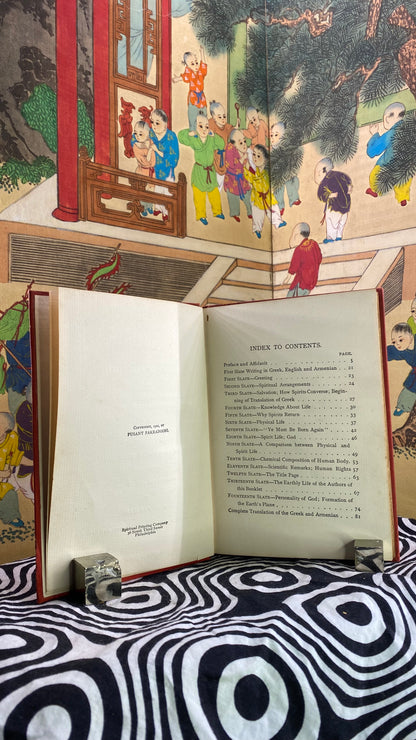 COPYRIGHT, 1901, BY
PUSANT PARZADIGHI.
Spiritual Printing Company
Philadelphia.
INDEX TO CONTENTS.
PAGE.
Preface and Affidavit . . . . . . . . . . 5
First Slate Writing in Greek, English and Armenian . . 11
FIRST SLATE—Greeting . . . . . . . . . . 23
SECOND SLATE—Spiritual Arrangements . . . . . 24
THIRD SLATE—Salvation; How Spirits Converse; Begin-
ning of Translation of Greek . . . . . . . 27
FOURTH SLATE—Knowledge About Life . . . . . . 30
FIFTH SLATE—Why Spirits Return . . . . . . . 33
SIXTH SLATE—Physical Life . . . . . . . . 37
SEVENTH SLATE—"Ye Must Be Born Again" . . . . 42
EIGHTH SLATE—Spirit Life; God . . . . . . . 46
NINTH SLATE—A Comparison between Physical and
Spirit Life . . . . . . . . . . . 50
TENTH SLATE—Chemical Composition of Human Body. 53
ELEVENTH SLATE—Scientific Remarks; Human Rights 57
TWELFTH SLATE—The Title Page . . . . . . . 61
THIRTEENTH SLATE—The Earthly Life of the Authors of
this Booklet . . . . . . . . . . . 67
FOURTEENTH SLATE—Personality of God; Formation of
the Earth's Plane . . . . . . . . . 74
Complete Translation of the Greek and Armenian . . . 81